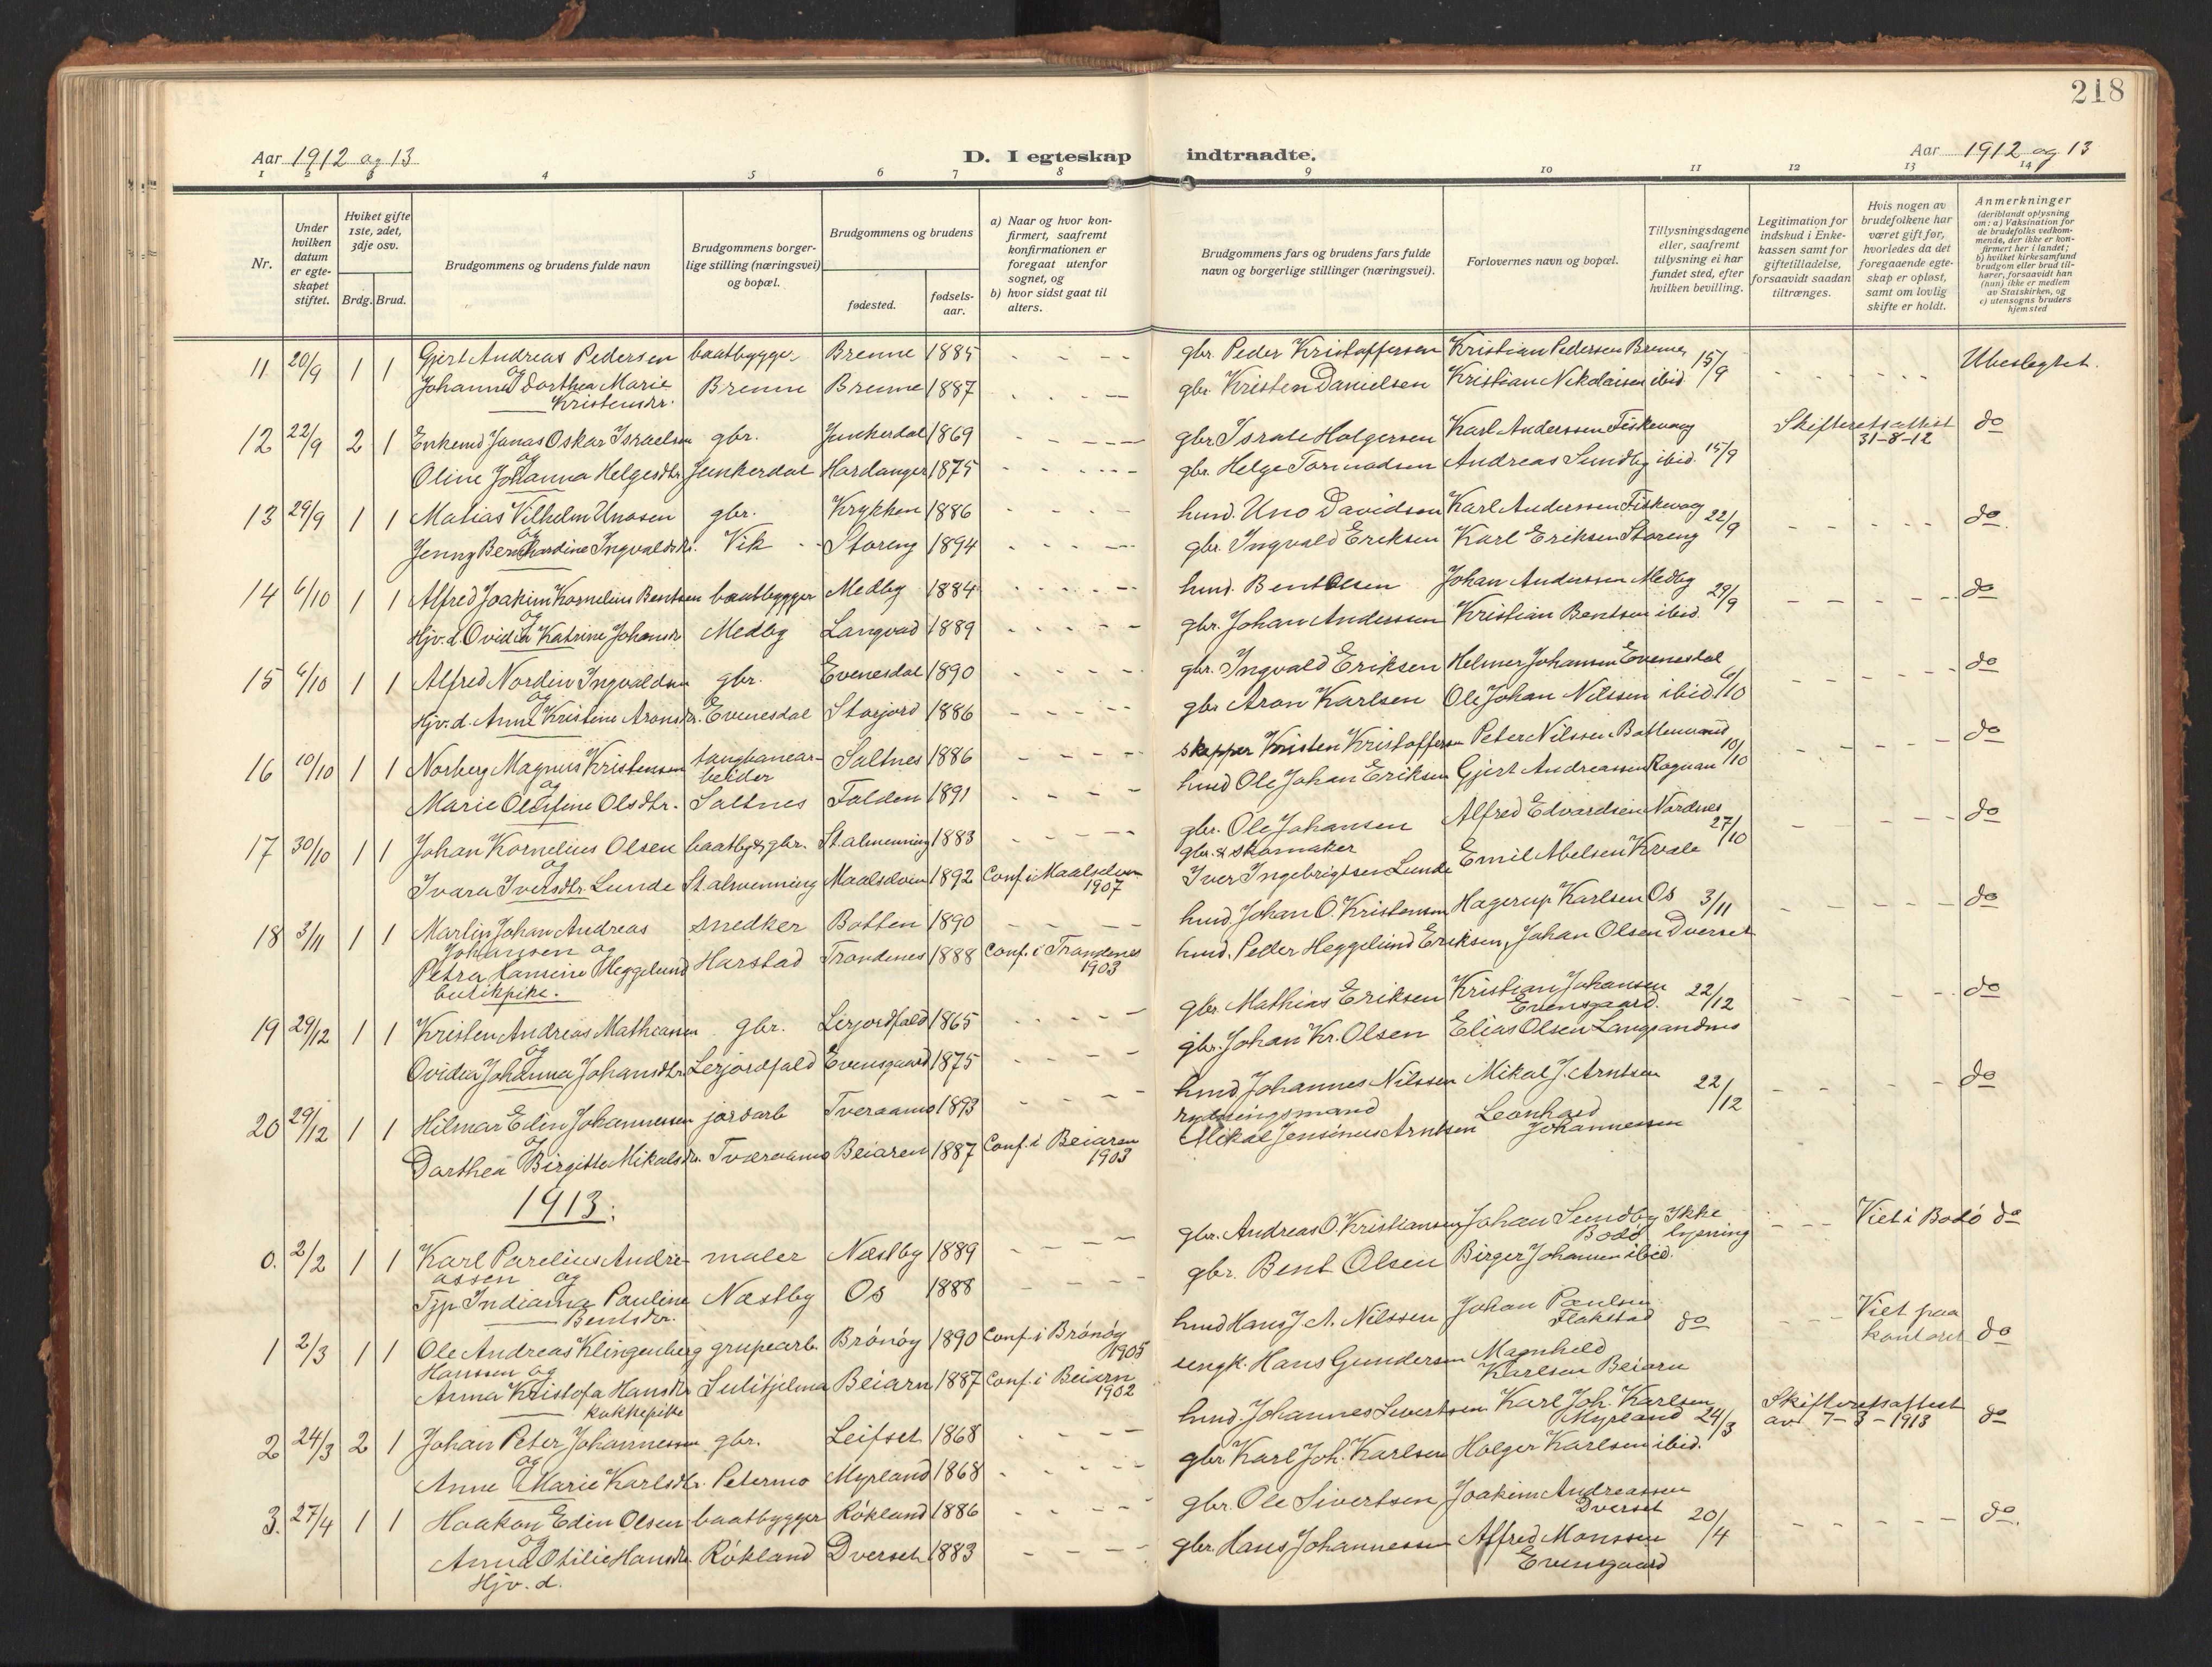 218
Aar 1912 og 13
D. I egteskap indtraadte.
Aar 1912 og 13
1 2 3 4 5 6 7 8 9 10 11 12 13 14
Nr.
Under hvilken datum er egteskapet stiftet.
Hvilket gifte 1ste, 2det, 3dje osv.
Brdg. Brud.
Brudgommens og brudens fulde navn
Brudgommens borgerlige stilling (næringsvei) og bopæl.
Brudgommens og brudens
fødested.
fødselsaar.
a) Naar og hvor konfirmert, saafremt konfirmationen er foregaat utenfor sognet, og
b) hvor sidst gaat til alters.
Brudgommens fars og brudens fars fulde navn og borgerlige stillinger (næringsvei).
Forlovernes navn og bopæl.
Tillysningsdagene eller, saafremt tillysning ei har fundet sted, efter hvilken bevilling.
Legitimation for indskud i Enkekassen samt for giftetilladelse, forsaavidt saadan tiltrænges.
Hvis nogen av brudefolkene har været gift før, hvorledes da det foregaaende egteskap er opløst, samt om lovlig skifte er holdt.
Anmerkninger
(deriblandt oplysning om: a) Vaksination for de brudefolks vedkommende, der ikke er konfirmert her i landet;
b) hvilket kirkesamfund brudgom eller brud tilhører, forsaavidt han (hun) ikke er medlem av Statskirken, og
c) utensogns bruders hjemsted
11 20/9 1 1 Gjert Andreas Pedersen baatbygger Brenne 1885 gbr. Peder Kristoffersen Kristian Pedersen Brenne 15/9 Ubeslegtet.
og
Johanne Dorthea Marie Kristensdr. Brenne Brenne 1887 gbr. Kristen Danielsen Kristian Nikolaisen ibid
12 22/9 2 1 Enkemd Jonas Oskar Israelsen gbr. Junkerdal 1869 gbr Israel Holgersen Karl Anderssen Fiskevaag 15/9 Skifteretsattest 31-8-12 do
og
Oline Johanna Helgesdtr. Junkerdal Hardanger 1875 gbr. Helge Tormodsen Andreas Sundby ibid.
13 29/9 1 1 Matias Vilhelm Unosen gbr. Krykken 1886 husmd. Uno Davidsen Karl Anderssen Fiskevaag 22/9 do.
og
Jenny Bernhardine Ingvaldsdr. Vik Storeng 1894 gbr. Ingvald Eriksen Karl Eriksen Storeng
14 6/10 1 1 Alfred Joakim Kornelius Bentsen baatbygger Medby 1884 husmd. Bent Olsen Johan Anderssen Medby 29/9 do
og
Hjv. d. Ovidia Katrine Johansdr Medby Langvad 1889 gbr. Johan Anderssen Kristian Bentsen ibid.
15 6/10 1 1 Alfred Nordin Ingvaldsen gbr. Evenesdal 1890 gbr. Ingvald Eriksen Helmer Johansen Evenesdal 6/10 do
og
Hjv. d. Anne Kristine Aronsdr. Evenesdal Storjord 1886 gbr Aron Karlsen Ole Johan Nilssen ibid
16 10/10 1 1 Norberg Magnus Kristensen taugbanearbeider Saltnes 1886 skipper Kristen Kristoffersen Peter Nilssen Bottenvand 10/10 do
og
Marie Olufine Olsdtr. Saltnes Folden 1891 husmd Ole Johan Eriksen Gjert Andreassen Rognan
17 30/10 1 1 Johan Kornelius Olsen baatb. & gbr. St.almenning 1883 gbr. Ole Johansen Alfred Edvardsen Nordnes 27/10 do
og
Ivara Iversdtr Lunde St.almenning Maalselven 1892 Conf. i Maalselven 1907 gbr. & skomaker Iver Ingebrigtsen Lunde Emil Abelsen Kvæle
18 3/11 1 1 Martin Johan Andreas Johansen og snedker Botten 1890 husmd. Johan O. Kristensen Hagerup Karlsen Os 3/11 do
Petra Hansine Heggelund butikpike. Harstad Trondenes 1888 Conf. i Trondenes 1903 husmd. Peder Heggelund Eriksen, Johan Olsen Dverset
19 29/12 1 1 Kristen Andreas Matheasen gbr. Lerjordfald 1865 gbr Mathias Eriksen Kristian Johansen Evensgaard. 22/12 do
og
Ovidia Johanna Johansdtr. Lerjordfald Evensgaard 1875 gbr. Johan Kr. Olsen Elias Olsen Langsandmo
20 29/12 1 1 Hilmar Edin Johannessen jordarb Tveraamo 1893 husmd Johannes Nilssen Mikal J. Arntsen 22/12 do
og
Darthea Birgitte Mikalsdr. Tveraamo Beiaren 1887 Conf. i Beiaren 1903 rydningsmand Mikal Jensinus Arntsen Leonhard Johannessen
1913.
0. 2/2 1 1 Karl Parelius Andreassen og maler Næstby 1889 gbr. Andreas O. Kristiansen Johan Sundby Bodø Ikke lysning Viet i Bodø do
Tjp Indiana Pauline Bentsdr. Næstby Os 1888 gbr. Bent Olsen Birger Johansen ibid.
1 2/3 1 1 Ole Andreas Klingenberg Hanssen og grupearb. Brønøy 1890 Conf. i Brønøy 1905 husmd Hans J. A. Nilssen Johan Paulsen Flakstad do Viet paa kontoret do
Anna Kristofa Hansdr kokkepike Sulitjelma Beiarn 1887 Conf. i Beiarn 1902 ungk. Hans Gundersen Magnhild Karlsen Beiarn
2 24/3 2 1 Johan Peter Johannessen gbr. Leifset 1868 husmd. Johannes Sivertsen Karl Joh. Karlsen Myrland 24/3 Skifteretsattest av 7-3-1913 do
og
Anne Marie Karlsdtr. Petermo Myrland 1868 gbr Karl Joh. Karlsen Holger Karlsen ibid.
3. 27/4 1 1 Haakon Edin Olsen baatbygger Røkland 1886 gbr. Ole Sivertsen Joakim Andreassen Dverset 20/4 do.
og
Anna Otilie Hansdr. Hjv. d. Røkland Dverset 1883 gbr. Hans Johannessen Alfred Monssen Evensgaard